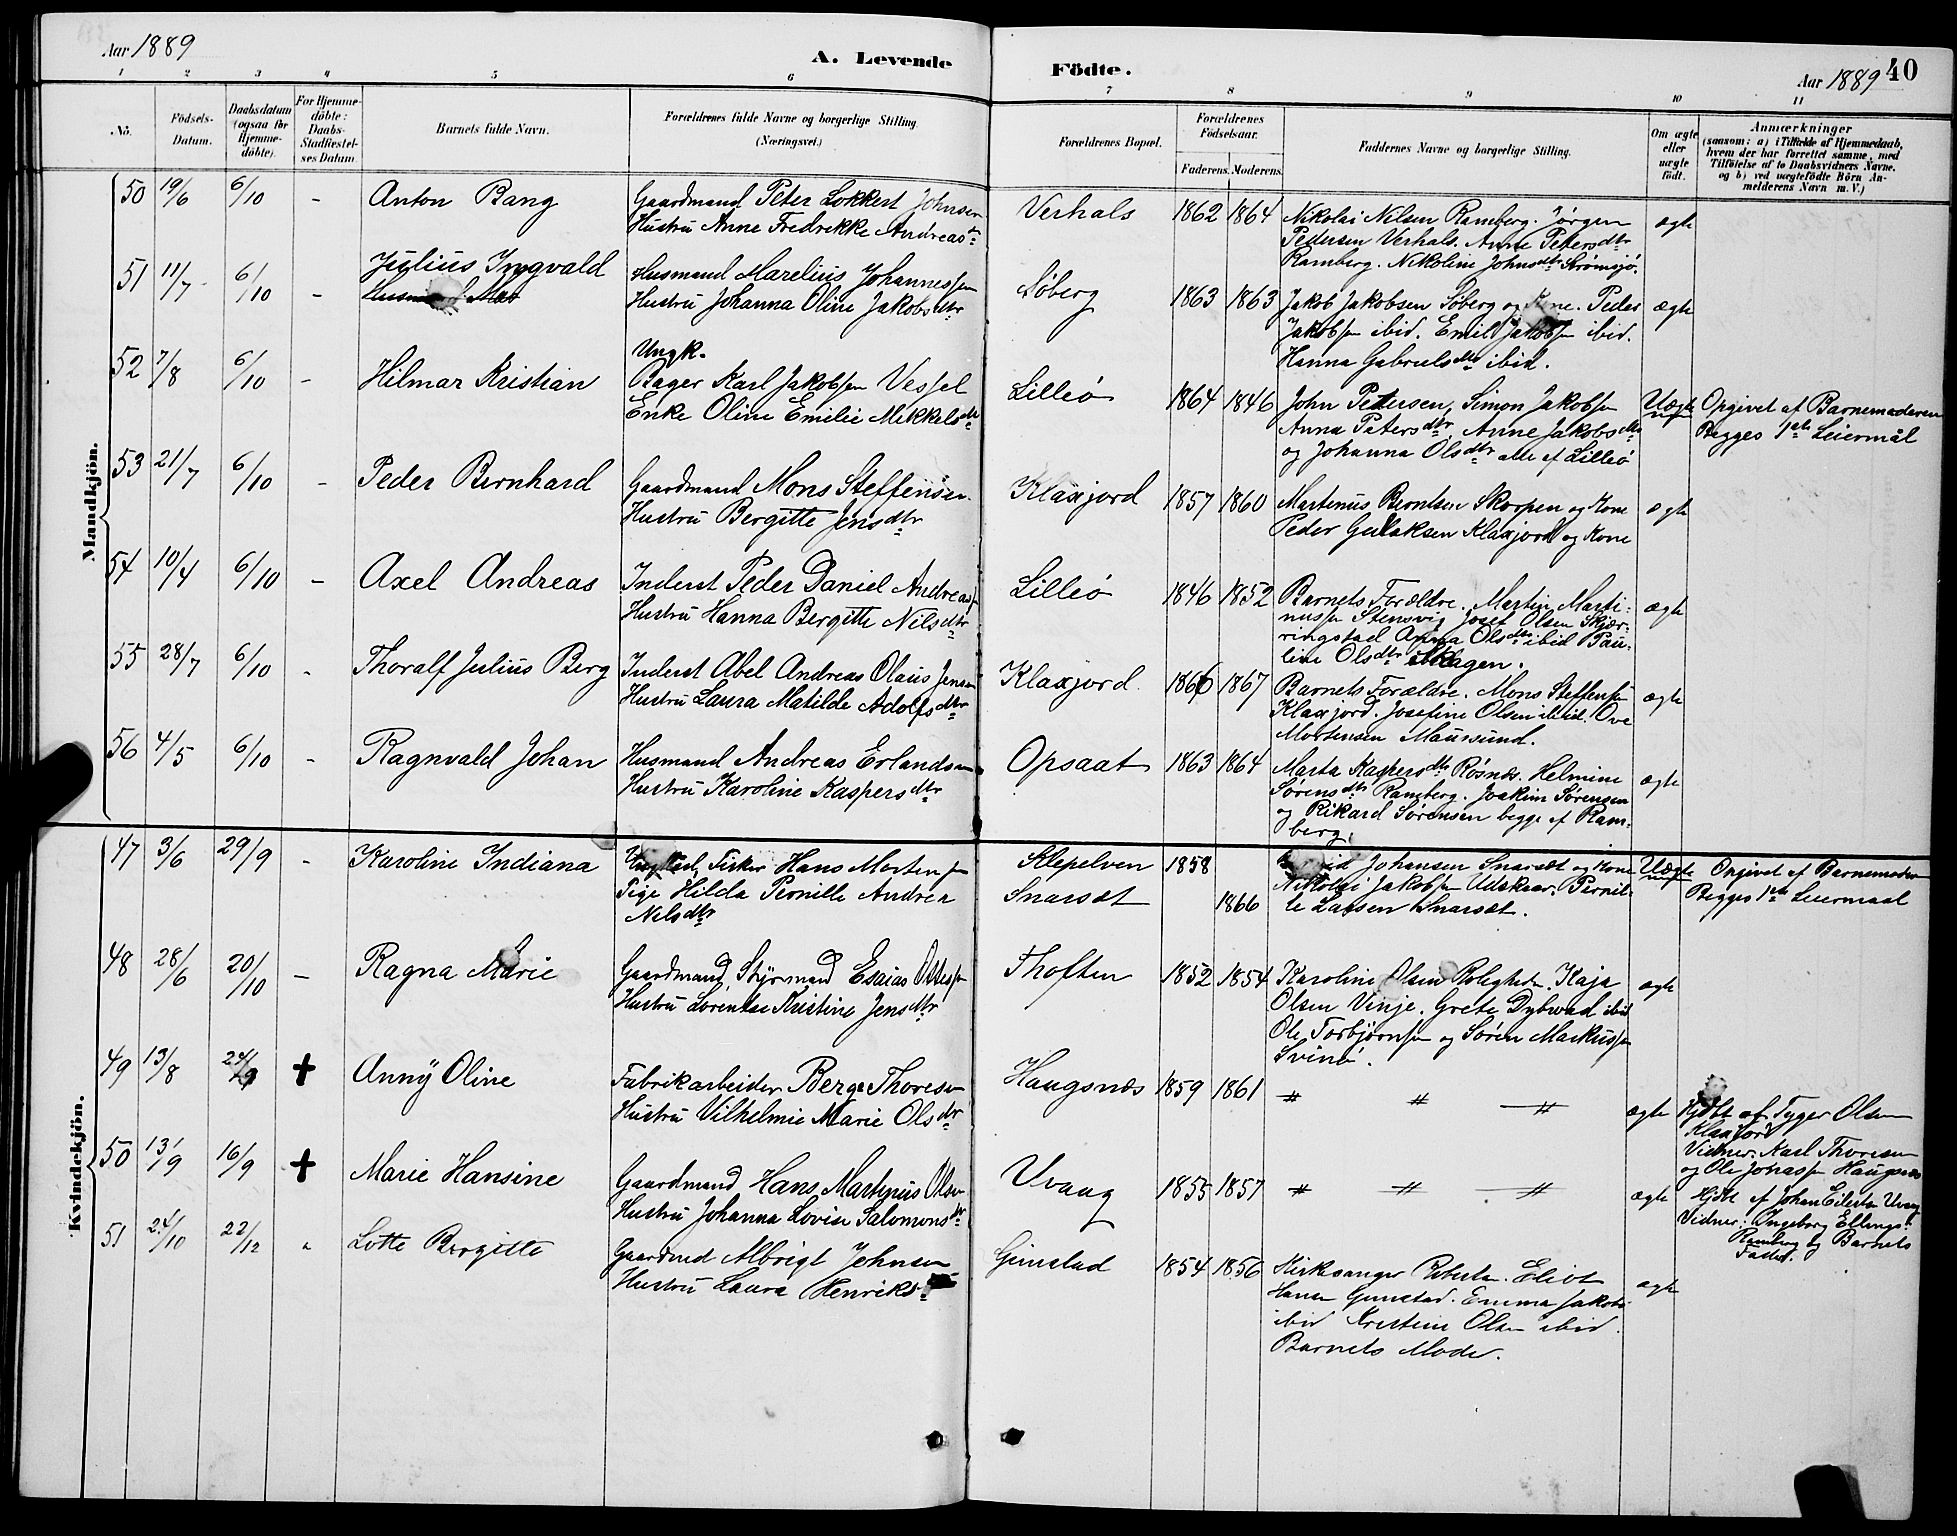 Aar 1889
A. Levende
Födte.
Aar 1889
40
1 2 3 4 5 6 7 8 9 10 11
No.
Födsels-
Datum.
Daabsdatum
(ogsaa for
Hjemme-
döbte).
For Hjemme-
döbte:
Daabs-
Stadfæstel-
ses Datum.
Barnets fulde Navn.
Forældrenes fulde Navne og borgerlige Stilling.
(Næringsvei.)
Forældrenes Bopæl.
Forældrenes
Födselsaar.
Faderens. Moderens.
Faddernes Navne og borgerlige Stilling.
Om ægte
eller
uægte
födt.
Anmærkninger
(saasom: a) i Tilfælde af Hjemmedaab,
hvem der har forrettet samme, med
Tilföielse af to Daabsvidners Navne.
og b) ved uægtefödte Börn An-
melderens Navn m. V.)
Mandkjön.
50 19/6 6/10 - Anton Bang
Gaardmand Peter Lokkert Johnsen
Hustru Anne Fredrikke Andreasdr
Verhals 1862 1864
Nikolai Nilsen Ramberg. Jörgen
Pedersen Verhals. Anne Petersdtr
Ramberg. Nikoline Johnsdtr Strömsjö.
ægte
51 11/7 6/10 - Julius Ingvald
Husmand Marelius Johannessen
Hustru Johanna Oline Jakobsdtr
Söberg 1863 1863
Jakob Jakobsen Söberg og Kone. Peder
Jakobsen ibid. Emil Jakobsen ibid.
Hanna Gabrielsdtr ibid.
ægte
52 7/8 6/10 - Hilmar Kristian
Ungk.
Bager Karl Jakobsen Vessel
Enke Oline Emilie Mikkelsdtr
Lilleö 1864 1846
John Petersen, Simon Jakobsen
Anna Petersdtr, Anne Jakobsdtr
og Johanna Olsdtr alle af Lilleö
Uægte
Opgivet af Barnemoderen
Begges 1ste Leiermål
53 21/7 6/10 - Peder Bernhard
Gaardmand Mons Steffensen
Hustru Bergitte Jensdtr
Klaxjord 1857 1860
Martinus Berntsen Skorpen og Kone
Peder Gulaksen Klaxjord og Kone
ægte
54 10/4 6/10 - Axel Andreas
Inderst Peder Daniel Andreasen
Hustru Hanna Bergitte Nilsdtr
Lilleö 1846 1852
Barnets Forældre. Martin Marti-
nussen Stensvig Josef Olsen Skjær-
ringstad Anna Olsdtr ibid Pau-
line Olsdtr Skagen.
ægte
55 28/7 6/10 - Thoralf Julius Berg
Inderst Abel Andreas Olaus Jensen
Hustru Laura Matilde Adolfsdtr
Klaxjord 1866 1867
Barnets Forældre. Mons Steffensen
Klaxjord. Josefine Olsen ibid. Ove
Mortensen Maursund.
ægte
56 4/5 6/10 - Ragnvald Johan
Husmand Andreas Erlandsen
Hustru Karoline Kaspersdtr
Opsaat 1863 1864
Marta Kaspersdtr Rösnes. Helmine
Sörensdtr Ramberg. Joakim Sörensen
og Rikard Sörensen begge af Ram-
berg.
ægte
Kvindekjön.
47 3/6 29/9 - Karoline Indiana
Ungkarl, Fisker Hans Mortensen
Pige Hilda Pernille Andrea
Nilsdtr
Sklepelven 1858
Snarset 1866
Johansen Snarset og Kone
Nikolai Jakobsen Udskaar. Pernil-
le Larsen Snarset.
Uægte
Opgivet af Barnemoderen
Begges 1ste Leiermaal
48 28/6 20/10 - Ragna Marie
Gaardmand, Styrmand Esaias Ottesen
Hustru Lorentse Kristine Jensdtr
Thoften 1852 1854
Karoline Olsen Roligheten. Kaja
Olsen Vinje. Grete Dybwad ibid
Ole Torbjörnsen og Sören Markussen
Svinö.
ægte
49 13/8 24/9 + Anny Oline
Fabrikarbeider Berge Thoresen
Hustru Vilhelmie Marie Olsdtr
Haugsnæs 1859 1861 " " "
ægte
Hjdbt af Tyger Olsen
Klaxjord
Vidner: Karl Thoresen
og Ole Jonassen Haugsnæs
50 13/9 16/9 + Marie Hansine
Gaardmand Hans Martinius Olsen
Hustru Johanna Lovise Salomonsdtr
Uvaag 1855 1857 " " "
ægte
Hjdbt af Johan Eilertsen Uvaag
Vidner: Ingeborg Ellings-
Ramberg og Barnets
Fader.
51 24/10 22/12 " Lotte Bergitte
Gaardmd Albrigt Johnsen
Hustru Laura Henriks
Gimstad 1854 1856
Kirkesanger Robertsen. Eliot
Hansen Gimstad. Emma Jakobs-
ibid Kristine Olsen ibid.
Barnets Moder.
ægte